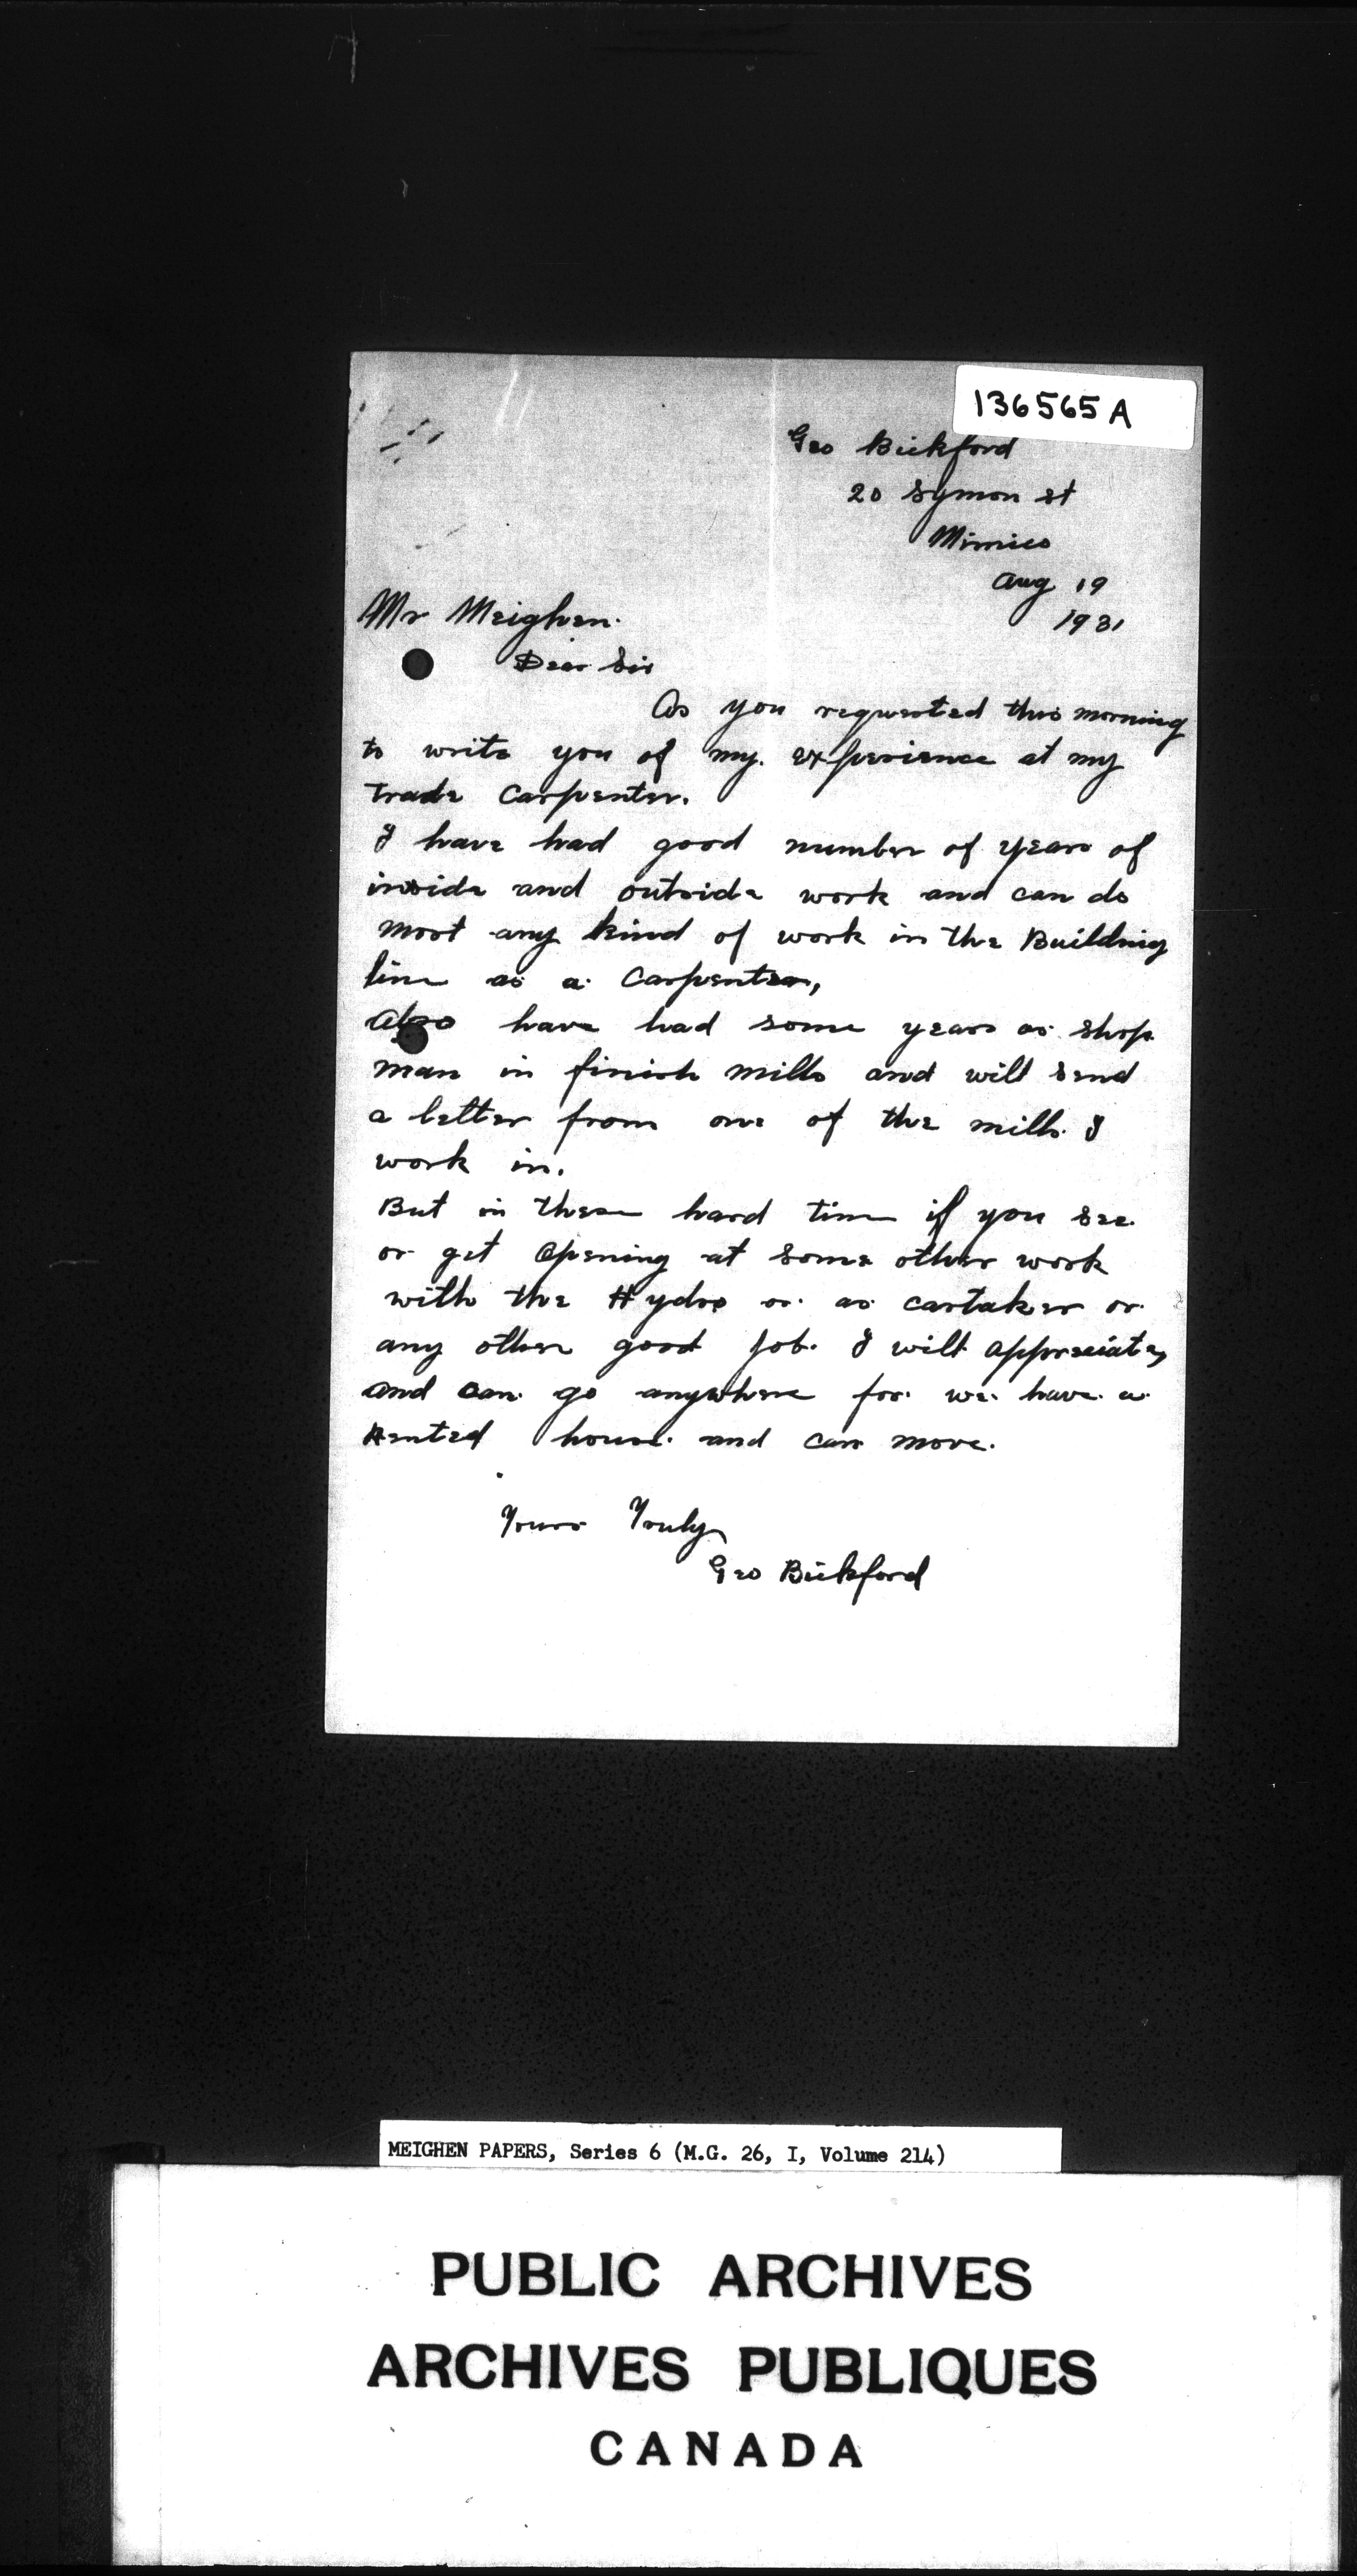 136565A
Geo Bickford
20 Symon st
Mimico
Aug 19
1931
Mr Meighen.
Dear Sir
As you requested this morning
to write you of my experience at my
trade Carpenter.
I have had good number of years of
inside and outside work and can do
most any kind of work in the Building
line as a Carpenter,
Also have had some years as shop
man in finish mills and will send
a letter from one of the mills I
work in.
But in these hard time if you see
or get opening at some other work
with the Hydro or as cartaker or
any other good job. I will appreciate,
and can go anywhere for we have a
rented house and can move.
Yours Truly
Geo Bickford
MEIGHEN PAPERS, Series 6 (M.G. 26, I, Volume 214)
PUBLIC ARCHIVES
ARCHIVES PUBLIQUES
CANADA